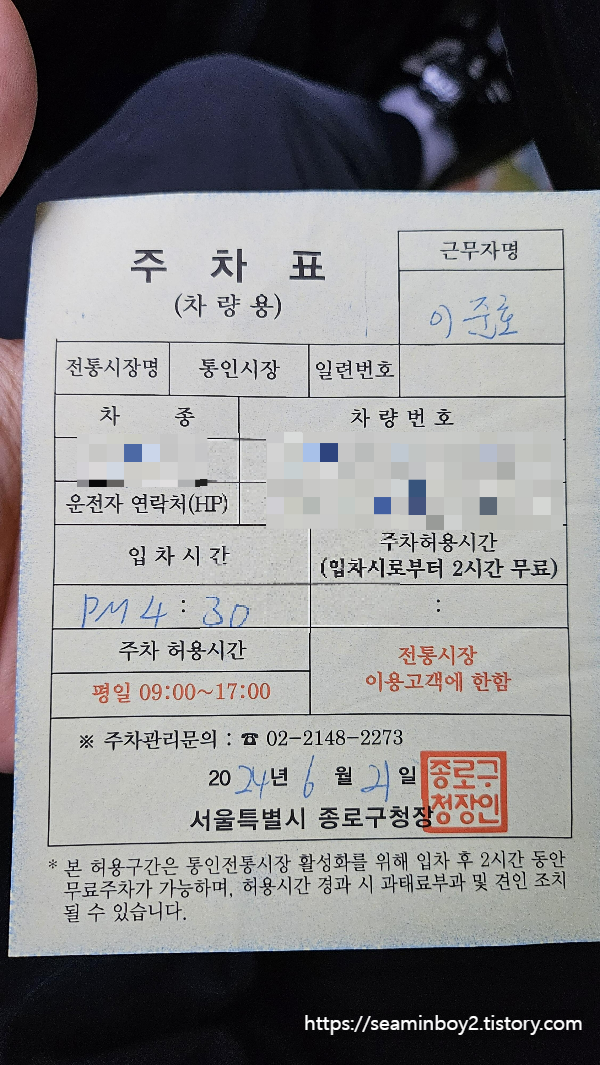 주 차 표
(차 량 용)
근무자명
이준호
전통시장명 통인시장 일련번호
차 종 차 량 번 호
운전자 연락처(HP)
입 차 시 간 주차허용시간
(입차시로부터 2시간 무료)
PM 4 : 30 :
주차 허용시간
평일 09:00~17:00
전통시장
이용고객에 한함
※ 주차관리문의 : ☎ 02-2148-2273
2024년 6 월 21일
서울특별시 종로구청장
종로구
청장인
* 본 허용구간은 통인전통시장 활성화를 위해 입차 후 2시간 동안
무료주차가 가능하며, 허용시간 경과 시 과태료부과 및 견인 조치
될 수 있습니다.
https://seaminboy2.tistory.com